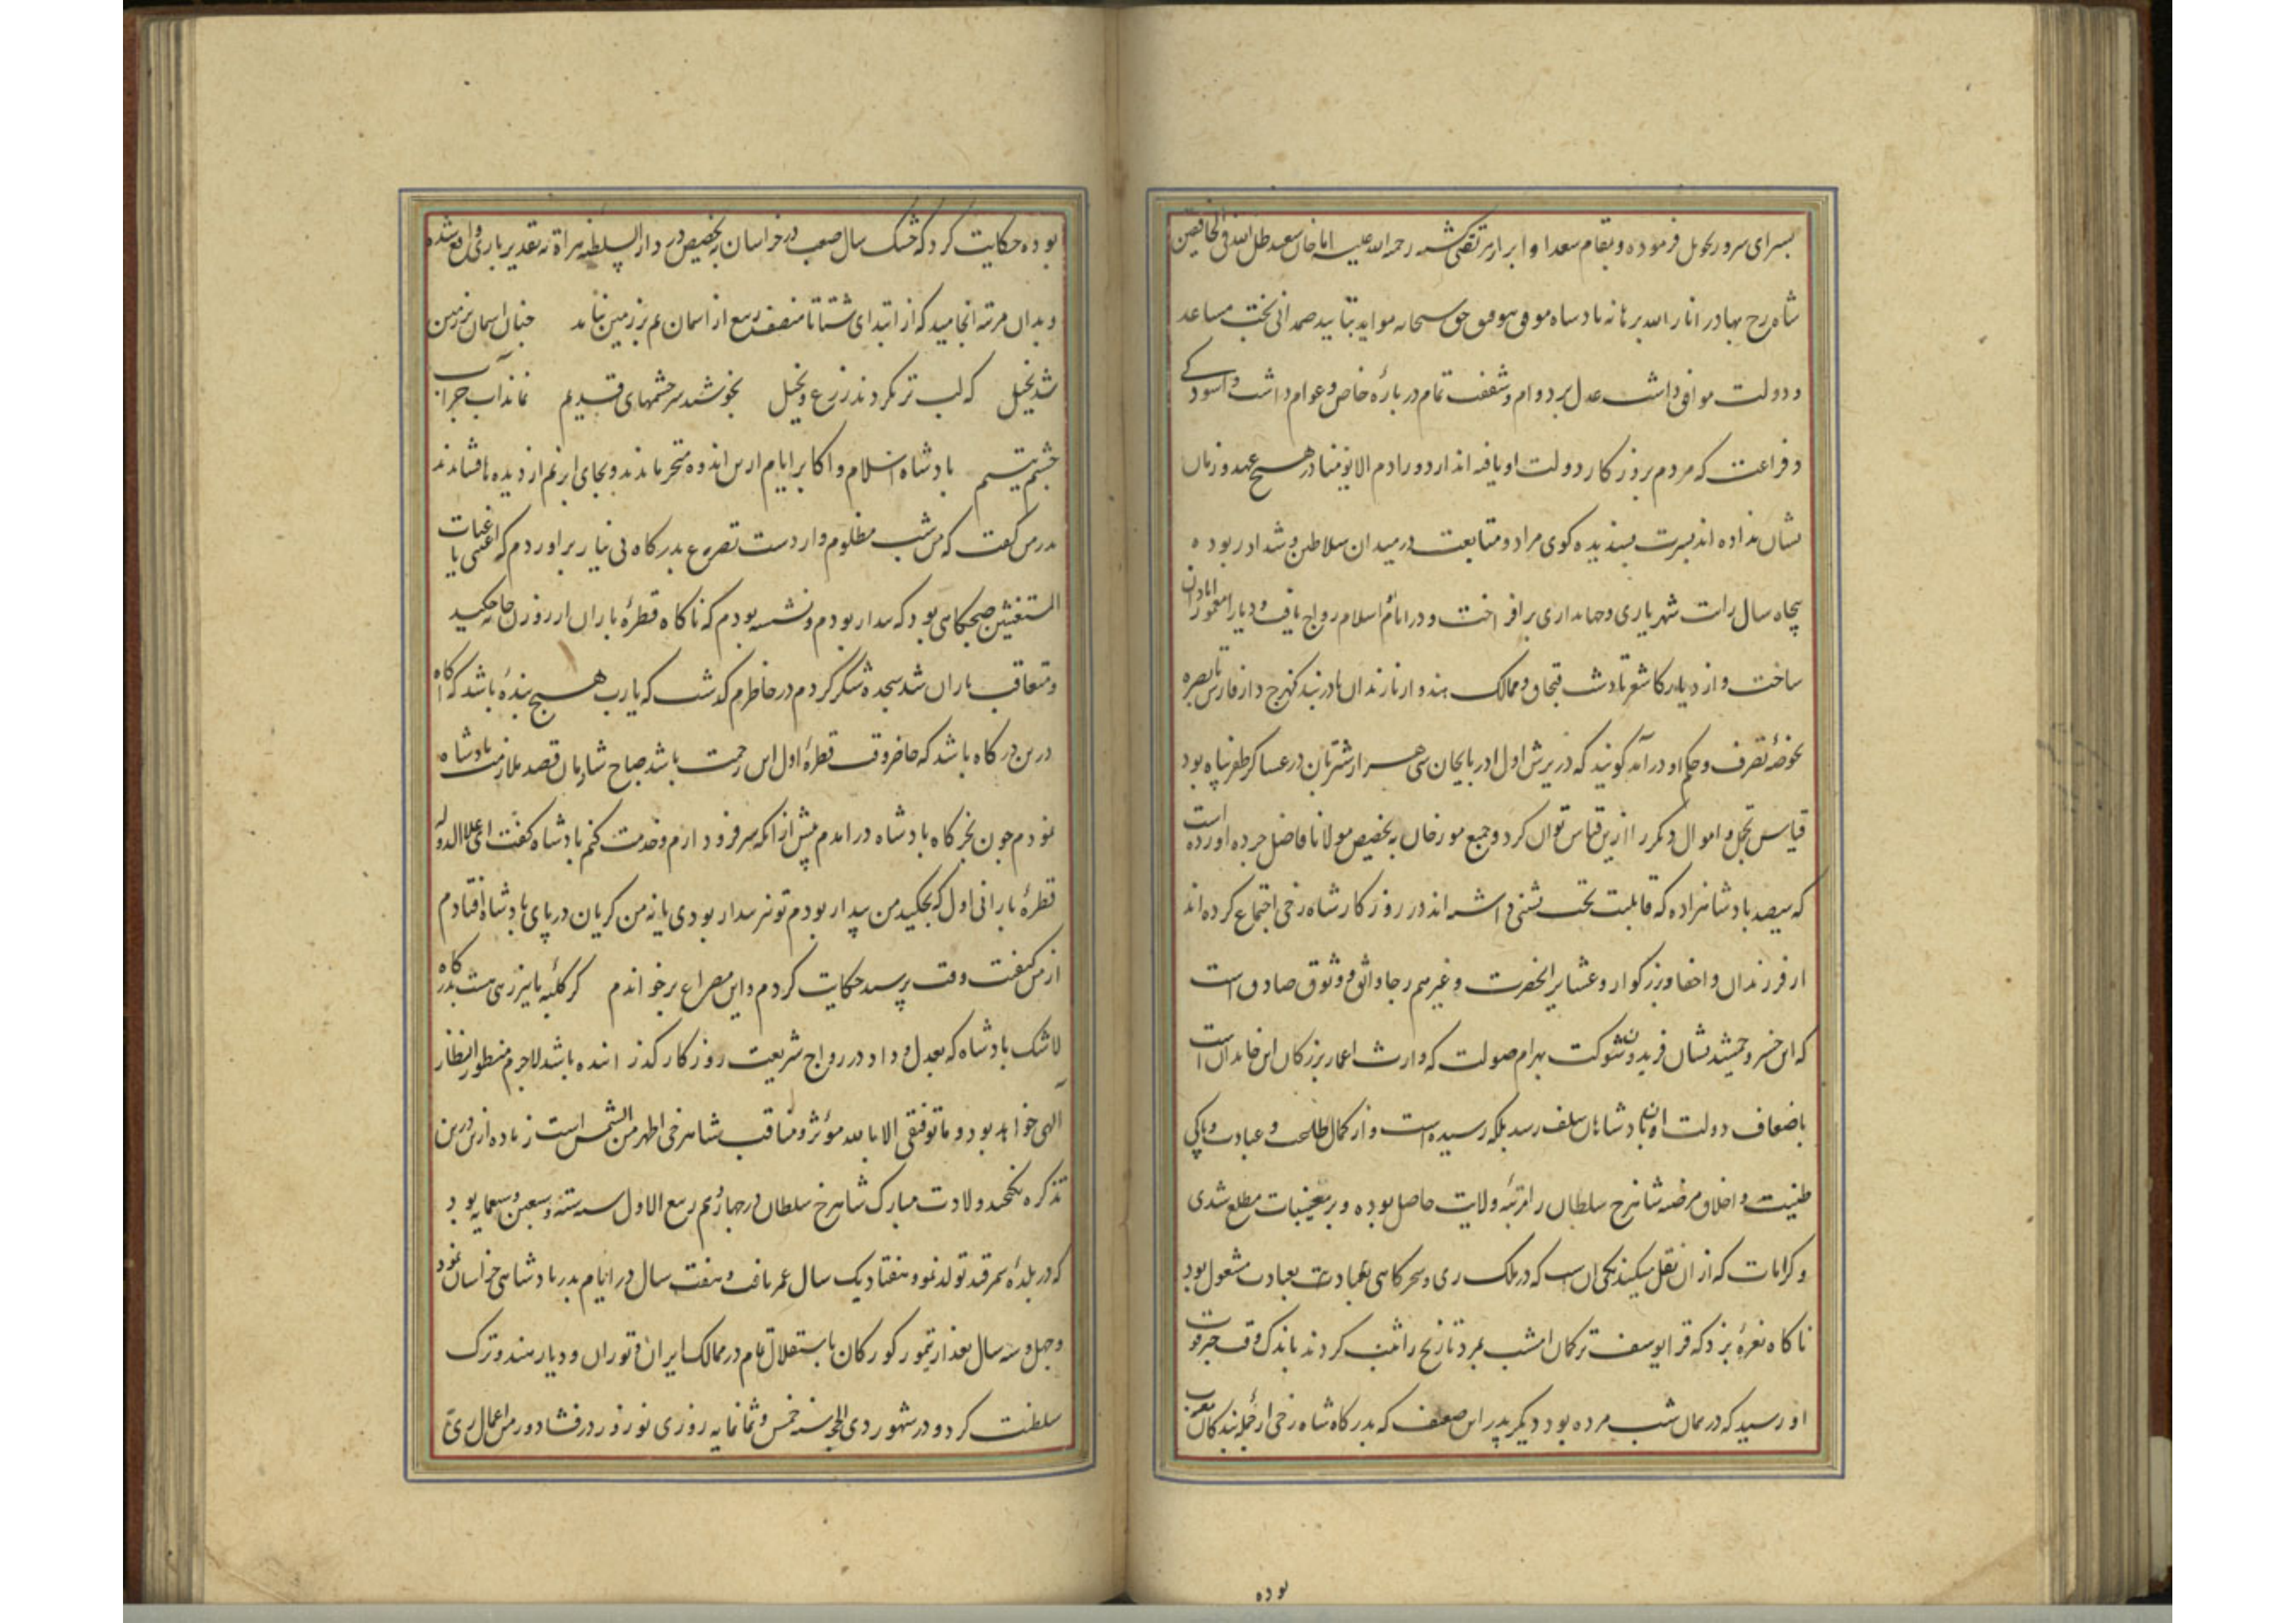 بسرای سرور تحویل فرموده و بمقام سعدا و ابرار مرتقی کشته رحمة الله علیه اما خاقان سعید ظل الله فی الخافقین
شاه رخ بهادر انار الله برهانه پادشاه موفق بتوفیق حق سبحانه موید بتایید صمدانی بخت مساعد
و دولت موافق داشت عدل بر دوام و شفقت تمام در باره خاص و عوام داشت و آسودگی
و فراغت که مردم بروزگار دولت او یافته اند از دور آدم الی یومنا در هیچ عهد و زمان
نشان نداده اند بسیرت پسندیده گوی مراد و متابعت در میدان سلاطین در ربوده
پنجاه سال رایت شهریاری و جهانداری برافراخت و در ایام اسلام رواج یافت و دیار را معمور و آبادان
ساخت و از دیار کاشغر تا دشت قبچاق و ممالک هند و از مازندران تا دربند و از فارس تا بصره
بحوزه تصرف و حکم او درآمد گویند که در یرش اول آذربایجان سی هزار شتربان در عساکر ظفر پناه بود
قیاس تجمل و اموال دیگر را ازین قیاس توان کرد و جمیع مورخان به تخصیص مولانا فاضل آورده است
که سیصد پادشاهزاده که قابلیت تخت نشینی داشته اند در روزگار شاه رخی اجتماع کرده اند
از فرزندان و احفاد بزرگوار و عشایر آنحضرت و غیرهم رجا واثق و وثوق صادق است
که این خسرو جمشید نشان فریدون شوکت بهرام صولت که وارث اعمار بزرگان این خاندان است
باضعاف دولت آن پادشاهان سلف رسد بلکه رسیده است و از کمال طاعت و عبادت و پاکی
طینت و اخلاق مرضیه شاهرخ سلطان را مرتبه ولایت حاصل بوده و بر مغیبات مطلع شدی
و کرامات که از آن نقل میکنند یکی آن است که در ملک ری سحرگاهی بعبادت مشغول بود
ناگاه نعره بزد که قرا یوسف ترکمان امشب بمرد تاریخ را ثبت کردند باندک وقت خبر فوت
او رسید که در همان شب مرده بود دیگر پدر این ضعیف که بدرگاه شاه رخی از جمله بندگان مقرب
بوده
بوده حکایت کرد که خشک سال صعب در خراسان به تخصیص در دار السلطنه هراة به تقدیر باری واقع شده
و بدان مرتبه انجامید که از ابتدای شتا تا منتصف ربیع از آسمان نم بر زمین نیامد چنان آسمان بر زمین
شد بخیل که لب تر نکردند زرع و نخیل بخوشید سرچشمهای قدیم نماند آب جز آب
چشم یتیم پادشاه اسلام و اکابر ایام ازین اندوه متحیر ماندند و بجای ابر نم از دیده میافشاندند
پدرم گفت که من شب مظلوم وار دست تضرع بدرگاه بی نیاز برآوردم که اغثنی یا غیاث
المستغیثین صبحگاهی بود که بیدار بودم و نشسته بودم که ناگاه قطره باران از روزن خانه چکید
و متعاقب باران شد سجده شکر کردم در خاطرم گذشت که یارب هیچ بنده باشد که آگاه
درین درگاه باشد که حاضر وقت قطره اول این رحمت باشد صباح شادمان قصد ملازمت پادشاه
نمودم چون بخرگاه پادشاه درآمدم پیش از آنکه سر فرود آرم و خدمت کنم پادشاه گفت ای علاء الدوله
قطره بارانی اول که بچکید من بیدار بودم تو نیز بیدار بودی یا نه من گریان در پای پادشاه افتادم
از من کیفیت وقت پرسید حکایت کردم و این مصراع برخواندم گر گلیه ما نیز رهی هست بدرگاه
لاشک پادشاه که بعدل و داد در رواج شریعت روزگار گذراننده باشد لاجرم منظور انظار
الهی خواهد بود و ما توفیقی الا بالله مؤثر و مناقب شاهرخی اظهر من الشمس است زیاده ازین درین
تذکره نگنجد ولادت مبارک شاهرخ سلطان در چهاردهم ربیع الاول سنه ستة و سبعین و سبعمایه بود
که در بلده سمرقند تولد نمود و هفتاد و یک سال عمر یافت و هفت سال در ایام پدر پادشاهی خراسان نمود
و چهل و سه سال بعد از تیمور کورکان باستقلال تمام در ممالک ایران و توران و دیار هند و ترک
سلطنت کرد و در شهور ذی الحجه سنه خمس و ثمانمایه روزی نوروز در فشاورد من اعمال ری